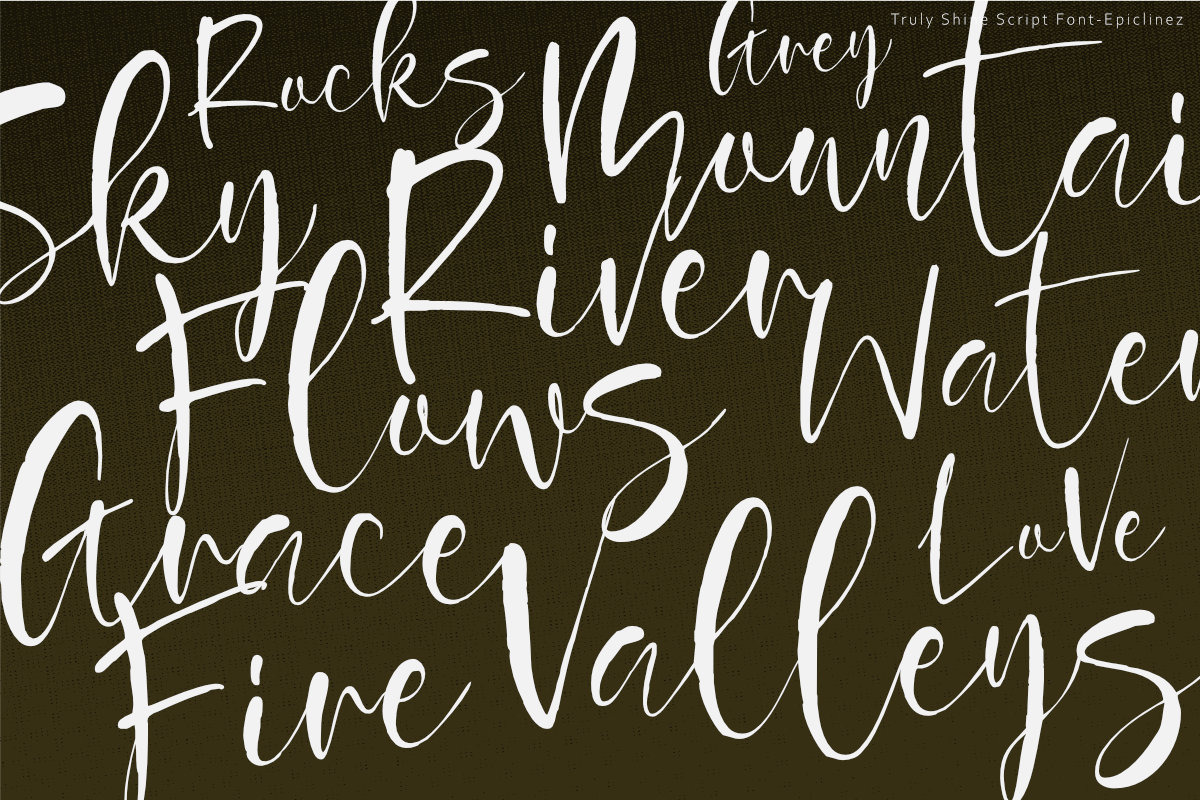 Truly Shine Script Font-Epiclinez
Rocks
Grey
Sky
Mountai
River
Flows
Water
Grace
Love
Fire
Valleys